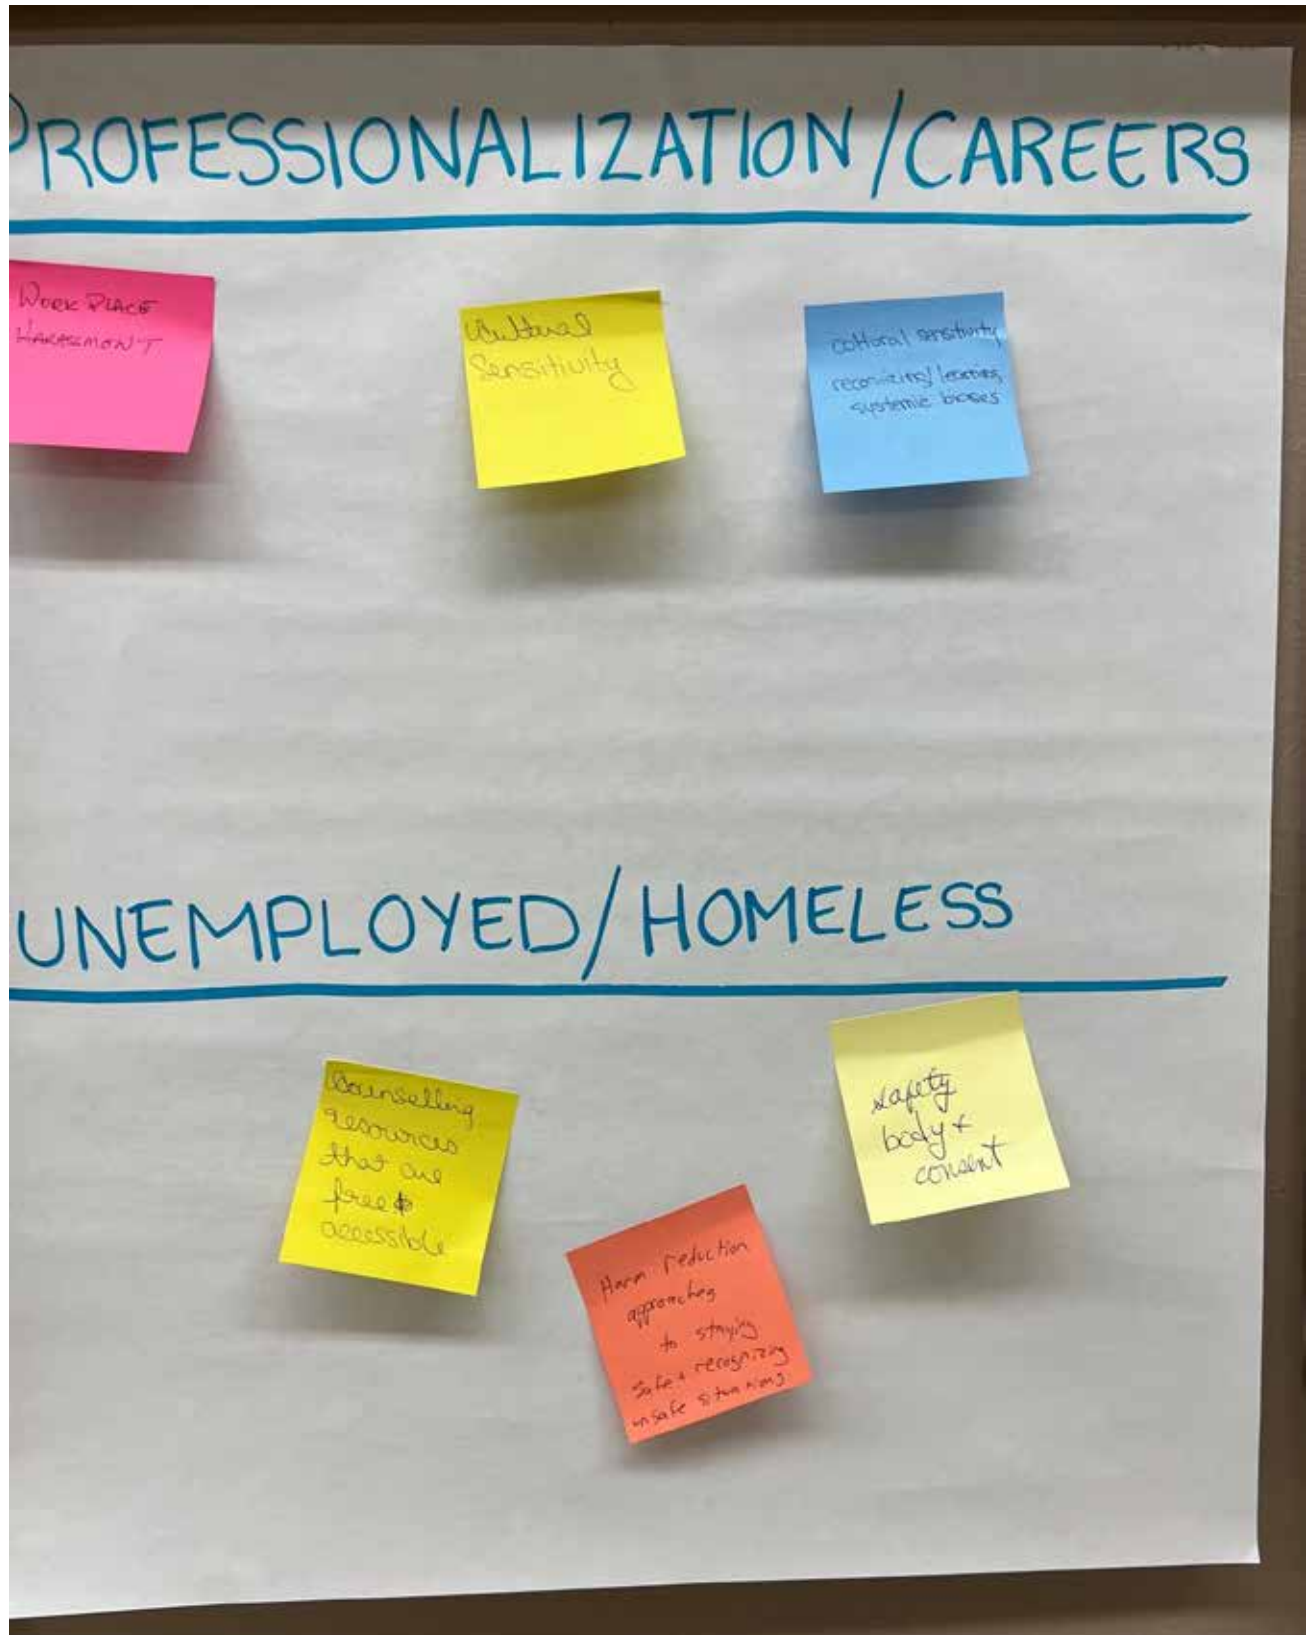 PROFESSIONALIZATION/CAREERS
WORK PLACE
HARASSMONT
Cultural
Sensitivity
coltoral sensitivity
recognizing/
systemic biases
UNEMPLOYED/HOMELESS
Counselling
resources
that are
free &
accessible
safety
body +
consent
Harm reduction
approaches
to staying
safe + recognizing
unsafe situations